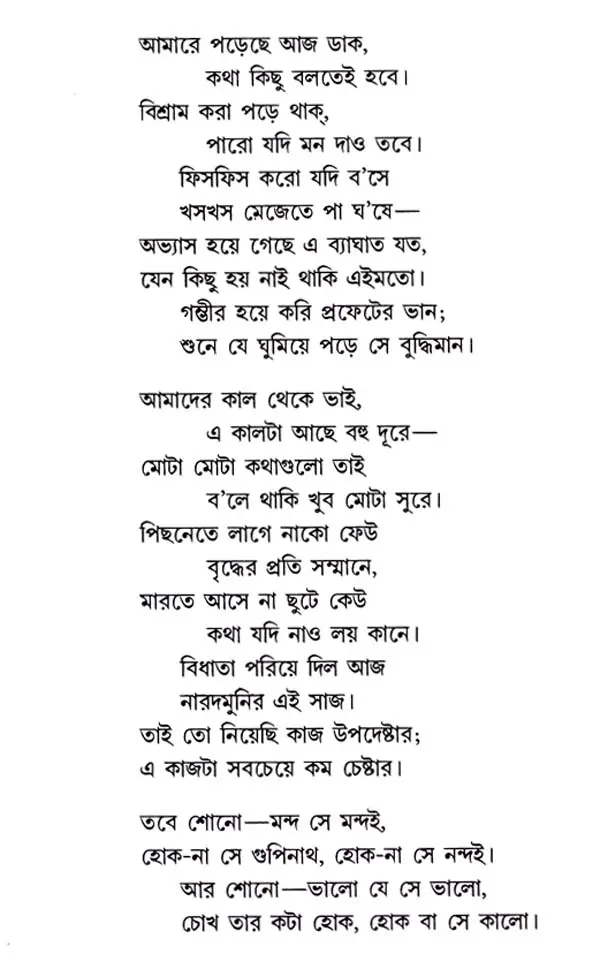 আমারে পড়েছে আজ ডাক,
কথা কিছু বলতেই হবে।
বিশ্রাম করা পড়ে থাক্‌,
পারো যদি মন দাও তবে।
ফিসফিস করো যদি ব'সে
খসখস মেজেতে পা ঘ'ষে—
অভ্যাস হয়ে গেছে এ ব্যাঘাত যত,
যেন কিছু হয় নাই থাকি এইমতো।
গম্ভীর হয়ে করি প্রফেটের ভান;
শুনে যে ঘুমিয়ে পড়ে সে বুদ্ধিমান।
আমাদের কাল থেকে ভাই,
এ কালটা আছে বহু দূরে—
মোটা মোটা কথাগুলো তাই
ব'লে থাকি খুব মোটা সুরে।
পিছনেতে লাগে নাকো ফেউ
বৃদ্ধের প্রতি সম্মানে,
মারতে আসে না ছুটে কেউ
কথা যদি নাও লয় কানে।
বিধাতা পরিয়ে দিল আজ
নারদমুনির এই সাজ।
তাই তো নিয়েছি কাজ উপদেষ্টার;
এ কাজটা সবচেয়ে কম চেষ্টার।
তবে শোনো—মন্দ সে মন্দই,
হোক-না সে গুপিনাথ, হোক-না সে নন্দই।
আর শোনো—ভালো যে সে ভালো,
চোখ তার কটা হোক, হোক বা সে কালো।